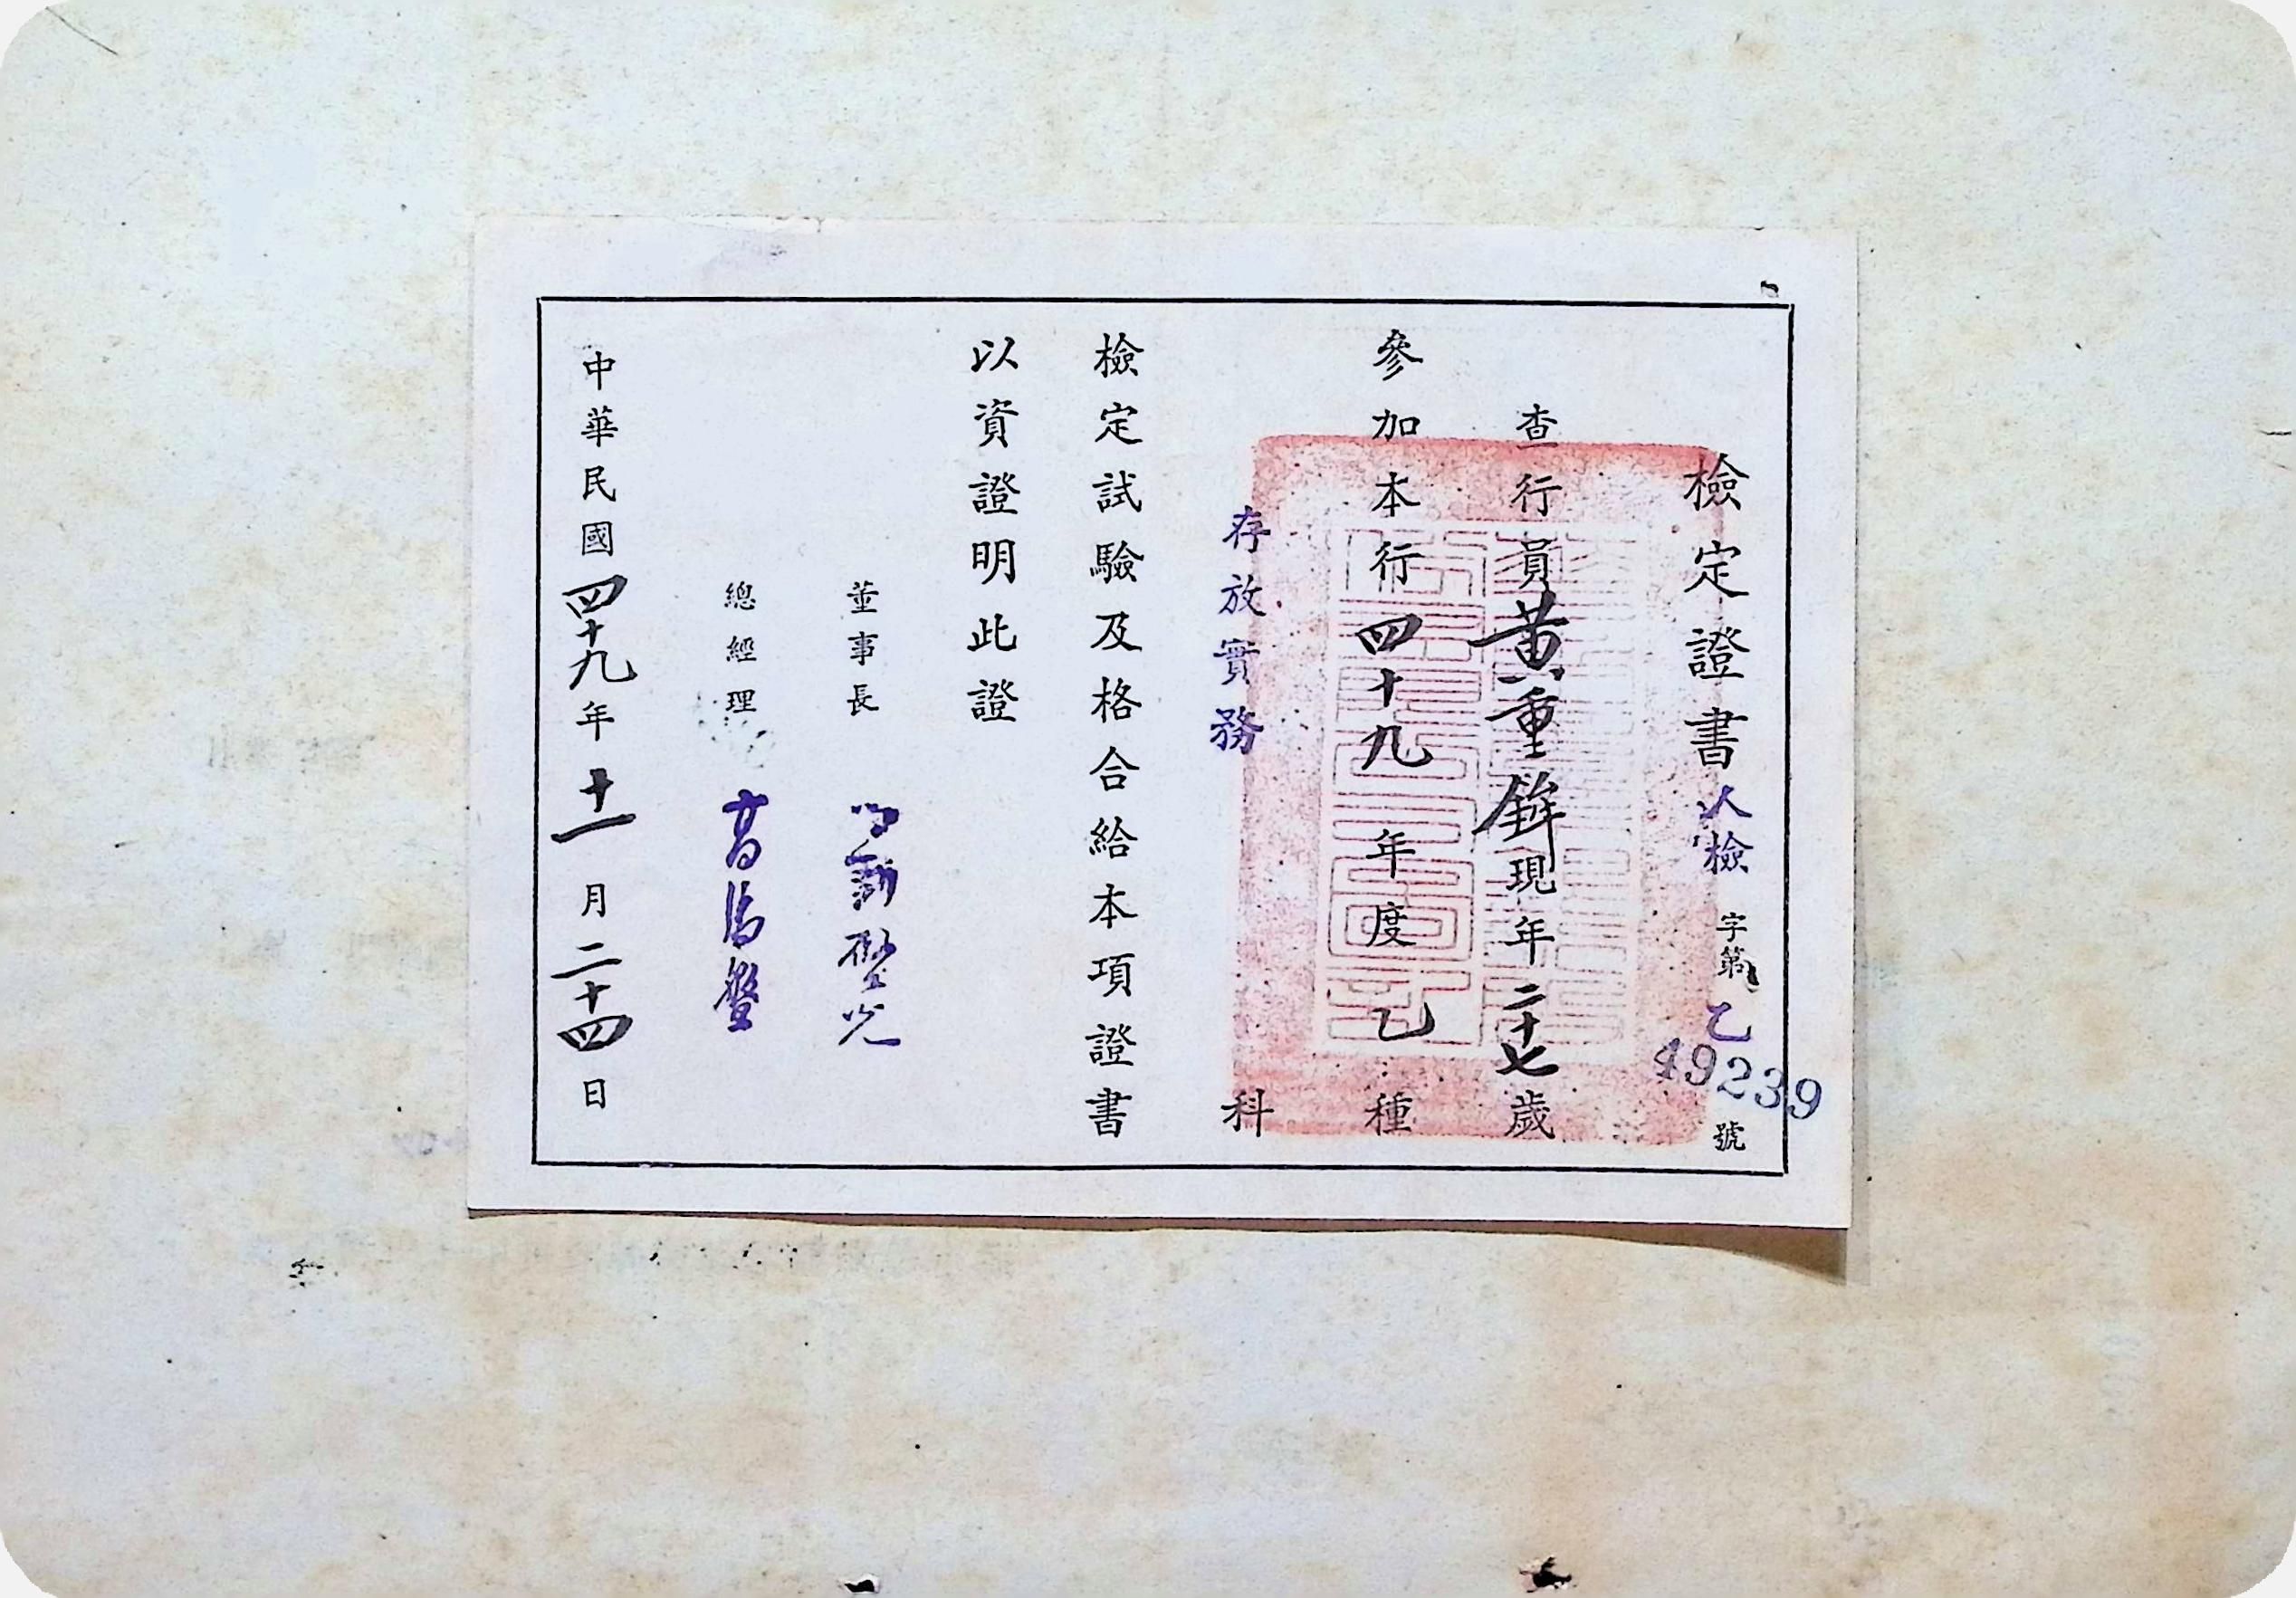 檢定證書人檢字第乙49239號
查行員黃重鉾現年二十七歲
參加本行四十九年度乙種
存放實務科
檢定試驗及格合給本項證書
以資證明此證
董事長
總經理
中華民國四十九年十一月二十四日